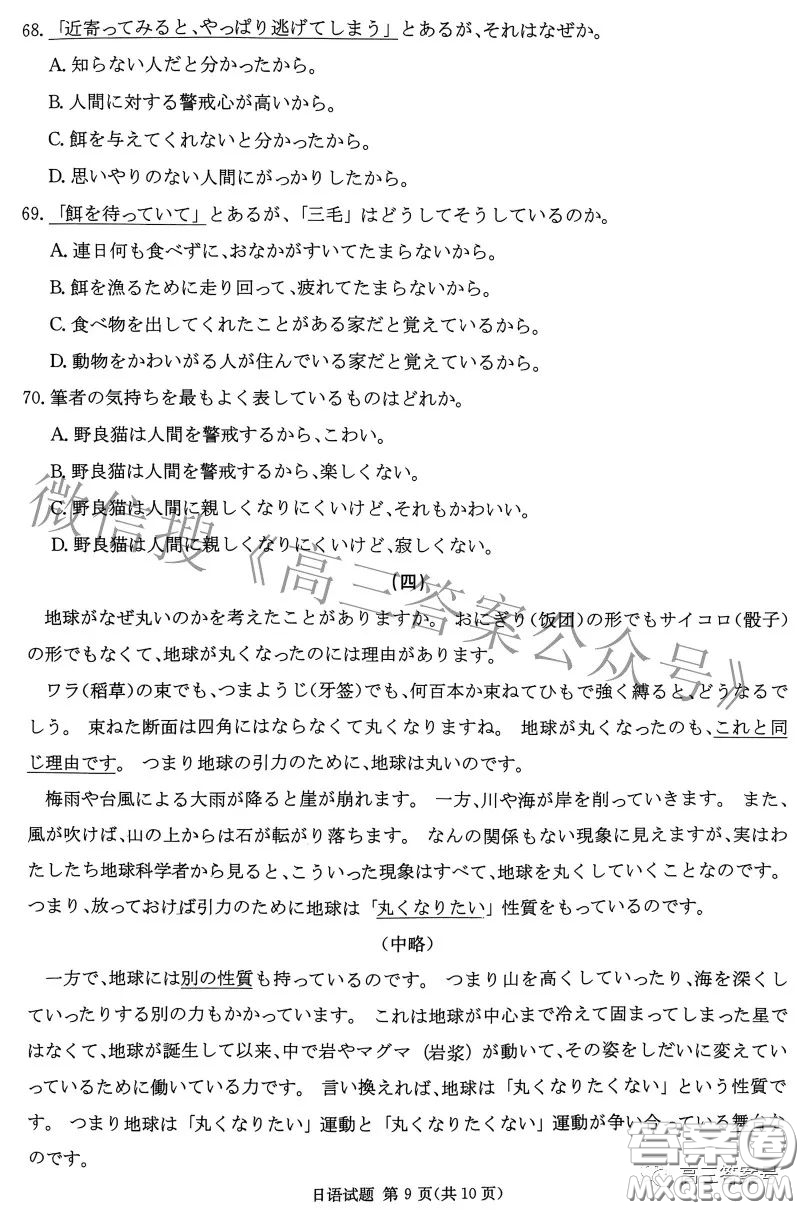 68.「近寄ってみると、やっぱり逃げてしまう」とあるが、それはなぜか。
A. 知らない人だと分かったから。
B. 人間に対する警戒心が高いから。
C. 餌を与えてくれないと分かったから。
D. 思いやりのない人間にがっかりしたから。
69.「餌を待っていて」とあるが、「三毛」はどうしてそうしているのか。
A. 連日何も食べずに、おなかがすいてたまらないから。
B. 餌を漁るために走り回って、疲れてたまらないから。
C. 食べ物を出してくれたことがある家だと覚えているから。
D. 動物をかわいがる人が住んでいる家だと覚えているから。
70. 筆者の気持ちを最もよく表しているものはどれか。
A. 野良猫は人間を警戒するから、こわい。
B. 野良猫は人間を警戒するから、楽しくない。
C. 野良猫は人間に親しくなりにくいけど、それもかわいい。
D. 野良猫は人間に親しくなりにくいけど、寂しくない。
(四)
地球がなぜ丸いのかを考えたことがありますか。 おにぎり(饭团)の形でもサイコロ(骰子)
の形でもなくて、地球が丸くなったのには理由があります。
ワラ(稻草)の束でも、つまようじ(牙签)でも、何百本か束ねてひもで強く縛ると、どうなるで
しょう。 束ねた断面は四角にはならなくて丸くなりますね。 地球が丸くなったのも、これと同
じ理由です。 つまり地球の引力のために、地球は丸いのです。
梅雨や台風による大雨が降ると崖が崩れます。 一方、川や海が岸を削っていきます。 また、
風が吹けば、山の上からは石が転がり落ちます。 なんの関係もない現象に見えますが、実はわ
たしたち地球科学者から見ると、こういった現象はすべて、地球を丸くしていくことなのです。
つまり、放っておけば引力のために地球は「丸くなりたい」性質をもっているのです。
(中略)
一方で、地球には別の性質も持っているのです。 つまり山を高くしていったり、海を深くし
ていったりする別の力もかかっています。 これは地球が中心まで冷えて固まってしまった星で
はなくて、地球が誕生して以来、中で岩やマグマ(岩浆)が動いて、その姿をしだいに変えてい
っているために働いている力です。 言い換えれば、地球は「丸くなりたくない」という性質で
す。 つまり地球は「丸くなりたい」運動と「丸くなりたくない」運動が争い合っている舞台な
のです。
日语试题 第 9 页(共 10 页)
微信搜《高三答案公众号》
答案圈
高三答案号
MXQE.COM